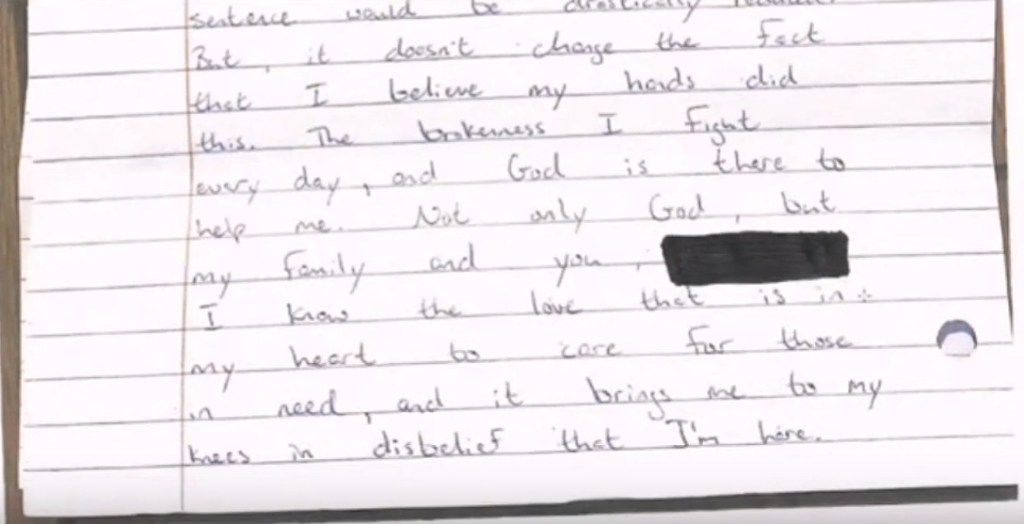 sentence would be drastically
But, it doesn't change the fact
that I believe my hands did
this. The brokenness I fight
every day, and God is there to
help me. Not only God, but
my family and you,
I know the love that is in
my heart to care for those
in need, and it brings me to my
knees in disbelief that I'm here.